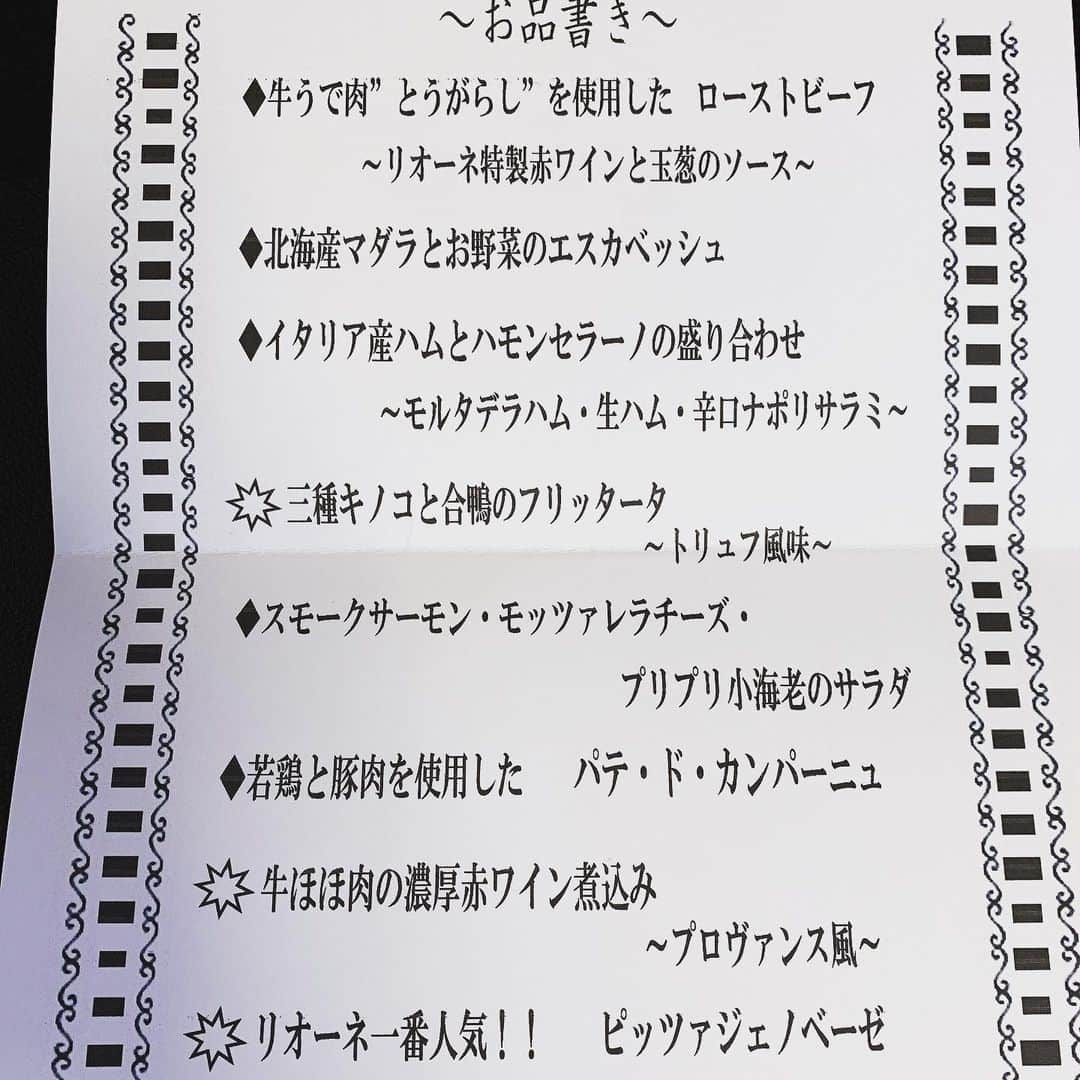 ～お品書き～
◆牛うで肉”とうがらし”を使用した ローストビーフ
～リオーネ特製赤ワインと玉葱のソース～
◆北海産マダラとお野菜のエスカベッシュ
◆イタリア産ハムとハモンセラーノの盛り合わせ
～モルタデラハム・生ハム・辛口ナポリサラミ～
三種キノコと合鴨のフリッタータ
～トリュフ風味～
◆スモークサーモン・モッツァレラチーズ・
プリプリ小海老のサラダ
◆若鶏と豚肉を使用した パテ・ド・カンパーニュ
牛ほほ肉の濃厚赤ワイン煮込み
～プロヴァンス風～
リオーネ一番人気！！ ピッツァジェノベーゼ